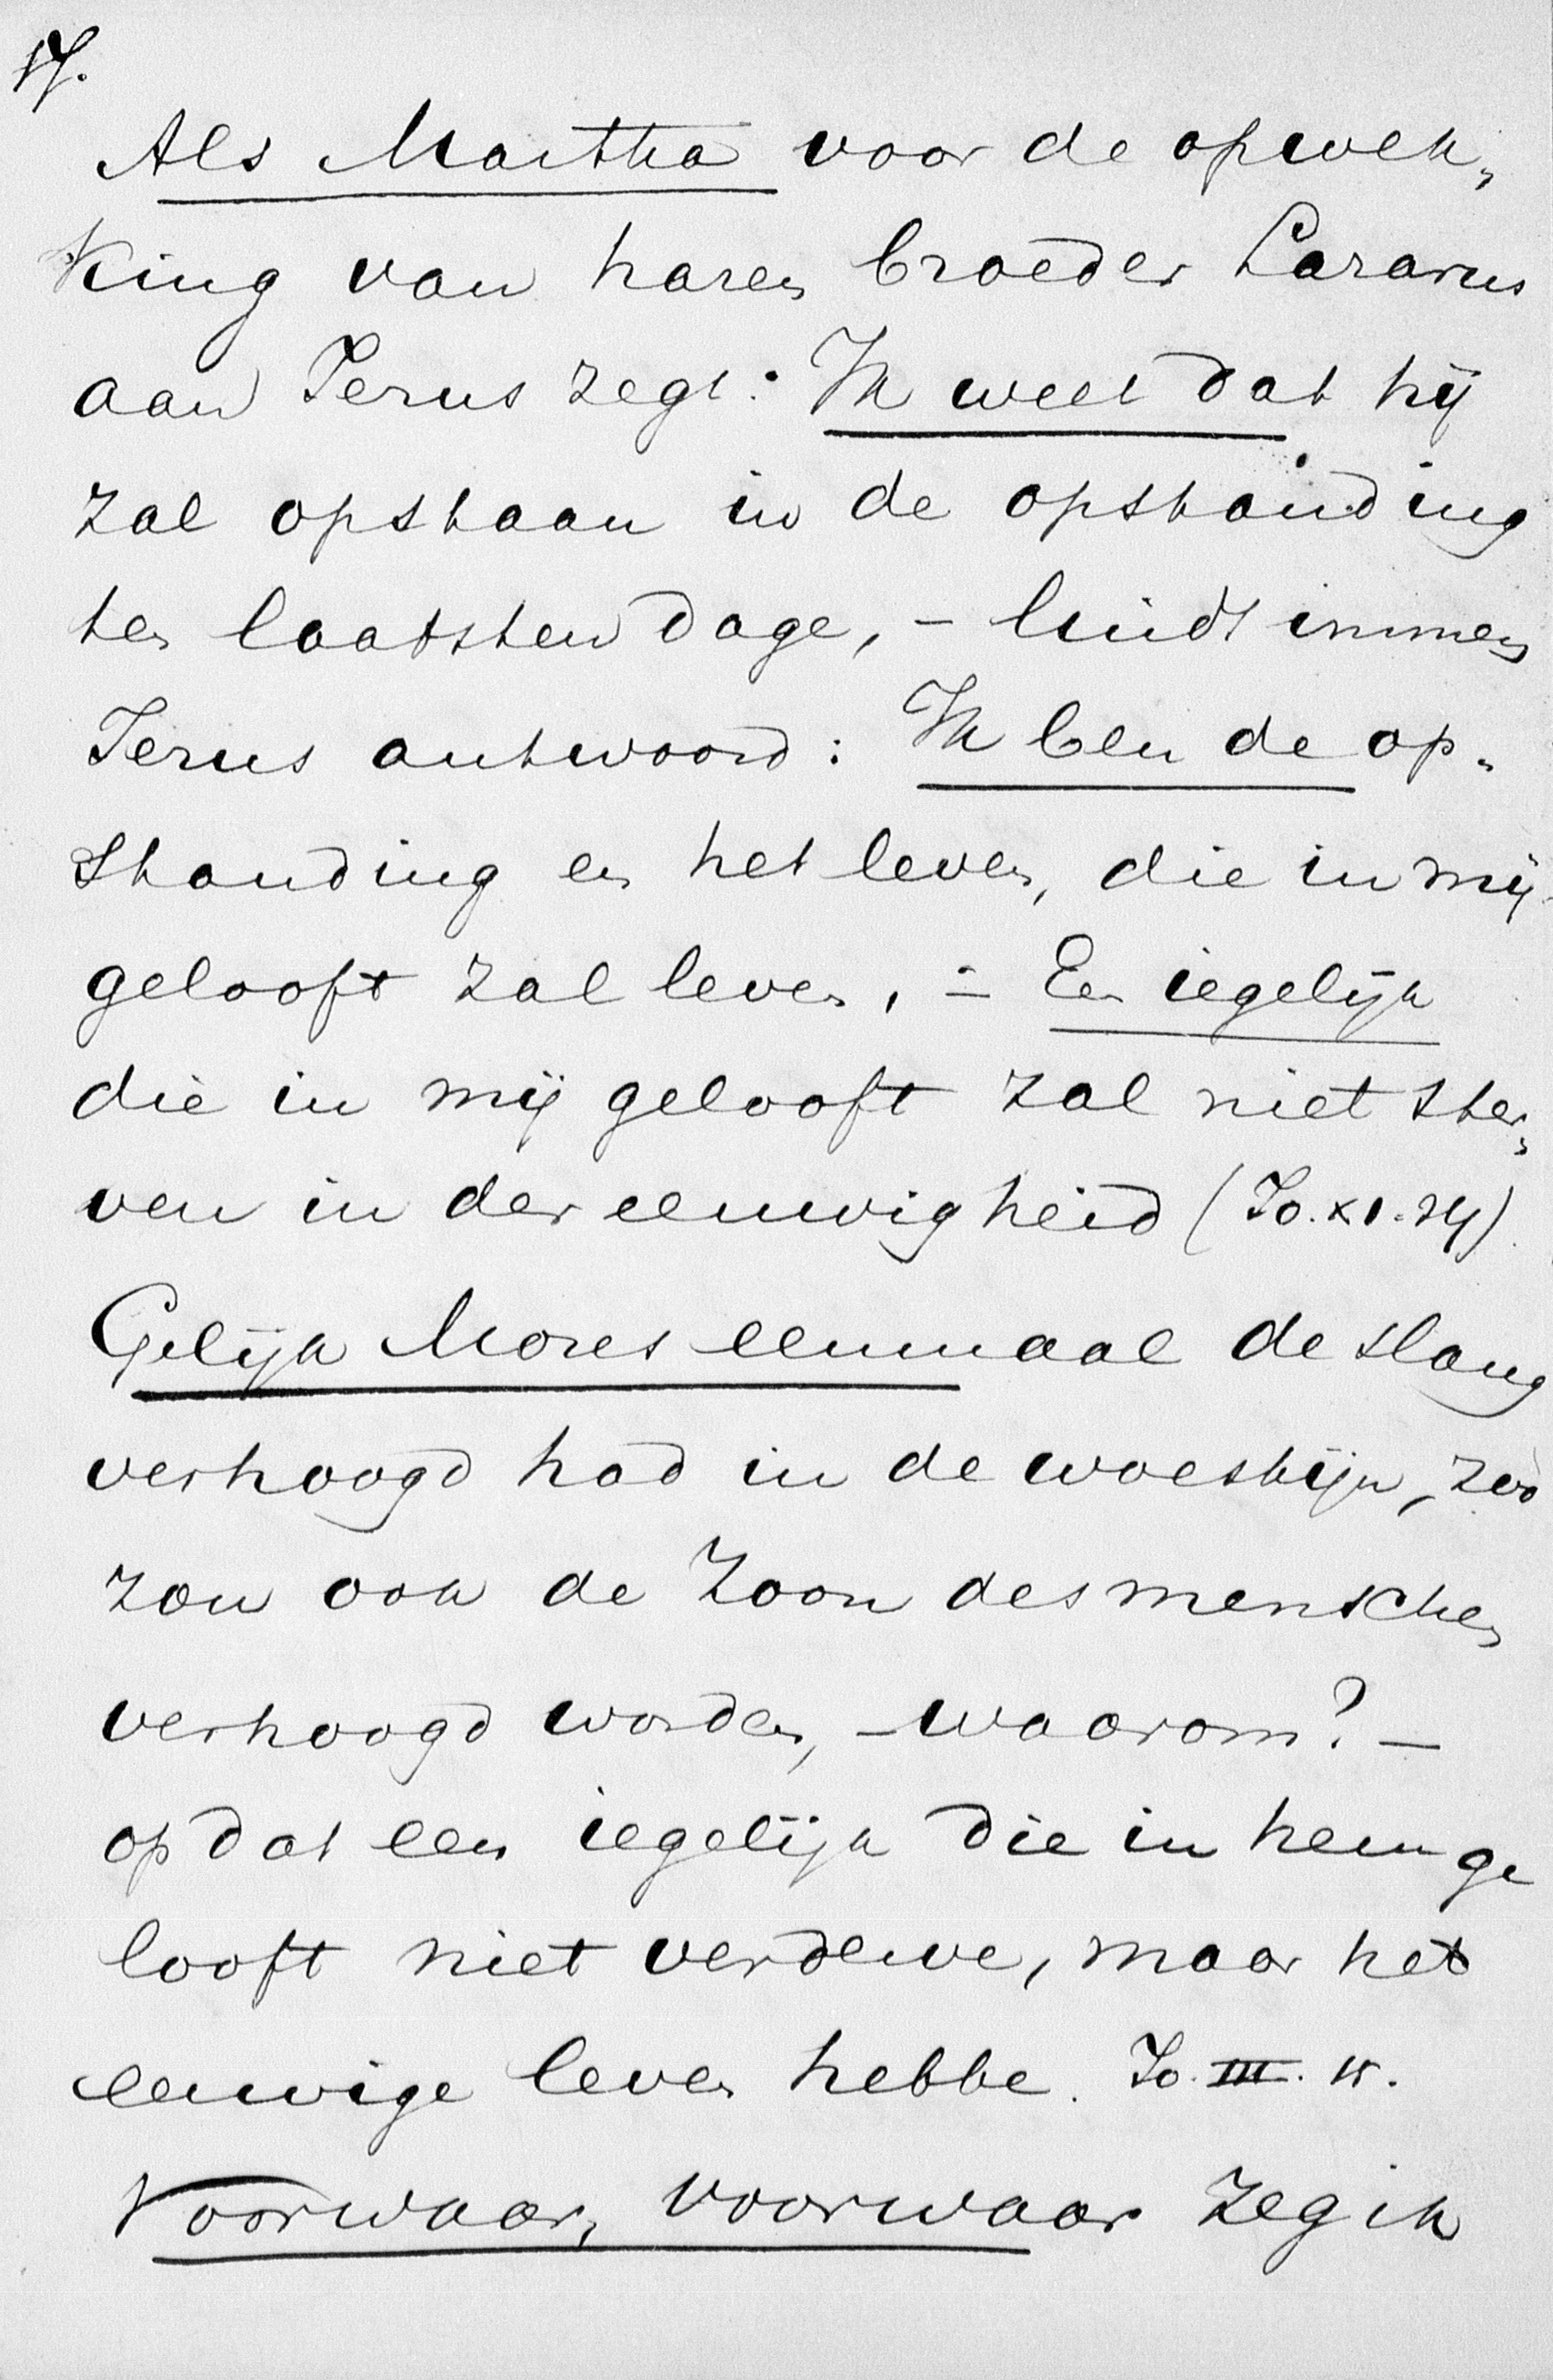 17.
Als Martha voor de opwek„
king van haren broeder Lazarus
aan Jezus zegt: Ik weet dat hij
zal opstaan in de opstanding
ten laatsten dage, – luidt immers
Jezus antwoord: Ik ben de op„
standing en het leven, die in mij
gelooft zal leven, – Een iegelijk
die in mij gelooft zal niet ster„
ven in der eeuwigheid (Jo. XI. 24)
Gelijk Mozes eenmaal de slang
verhoogd had in de woestijn, zoo
zou ook de Zoon des menschen
verhoogd worden, – waarom? –
opdat een iegelijk die in hem ge
looft niet verderve, maar het
eeuwige leven hebbe. Jo. III. 15.
Voorwaar, voorwaar zeg ik